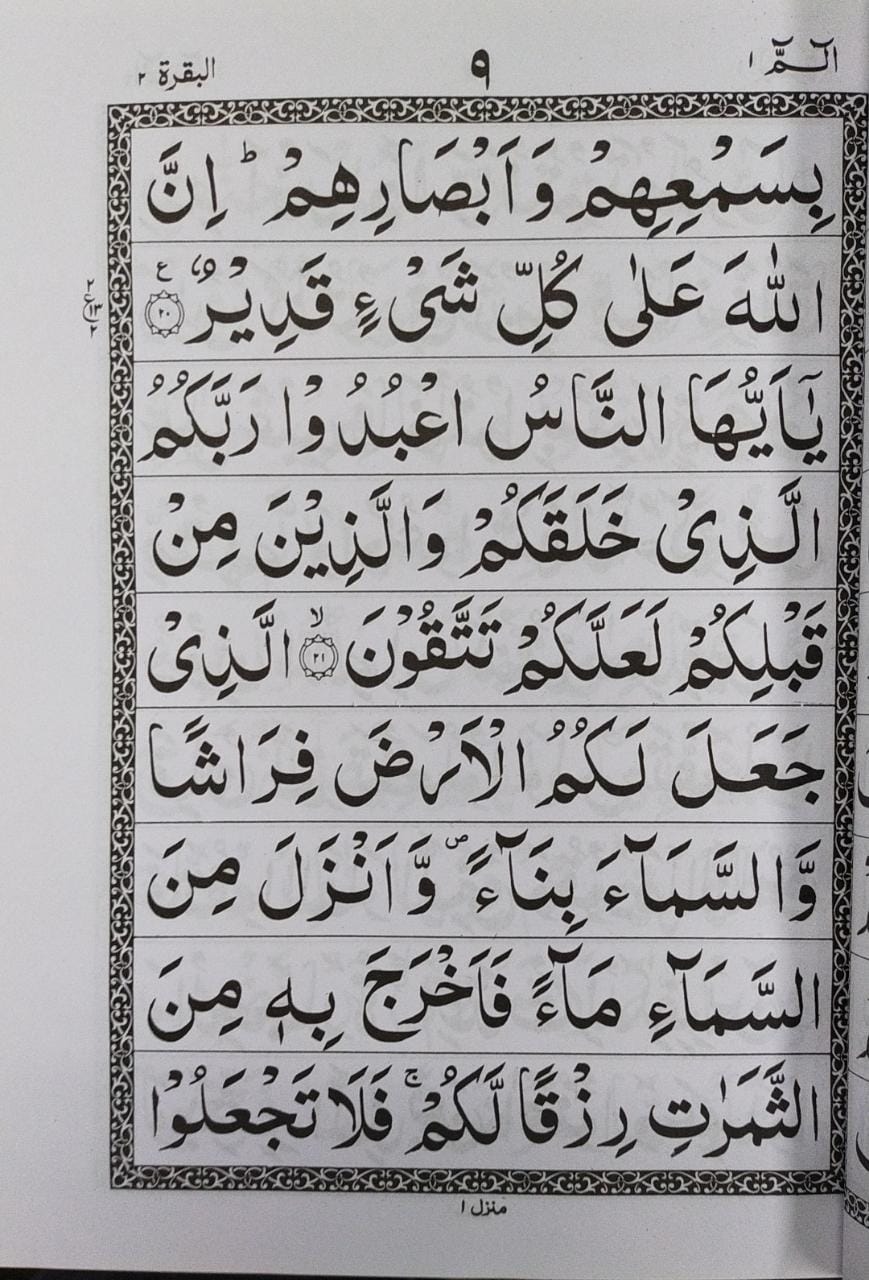 الٓمّٓ ١ ٩ البقرة ٢
بِسَمْعِهِمْ وَاَبْصَارِهِمْ ؕ اِنَّ
اللّٰهَ عَلٰى كُلِّ شَىْءٍ قَدِيْرٌ ۟ ع ٢٠
٢ ع ١٣ ٢
يٰۤاَيُّهَا النَّاسُ اعْبُدُوْا رَبَّكُمُ
الَّذِىْ خَلَقَكُمْ وَالَّذِيْنَ مِنْ
قَبْلِكُمْ لَعَلَّكُمْ تَتَّقُوْنَ ۙ ٢١ الَّذِىْ
جَعَلَ لَكُمُ الْاَرْضَ فِرَاشًا
وَّالسَّمَآءَ بِنَآءً ۪ وَّاَنْزَلَ مِنَ
السَّمَآءِ مَآءً فَاَخْرَجَ بِهٖ مِنَ
الثَّمَرٰتِ رِزْقًا لَّكُمْ ۚ فَلَا تَجْعَلُوْا
منزل ١